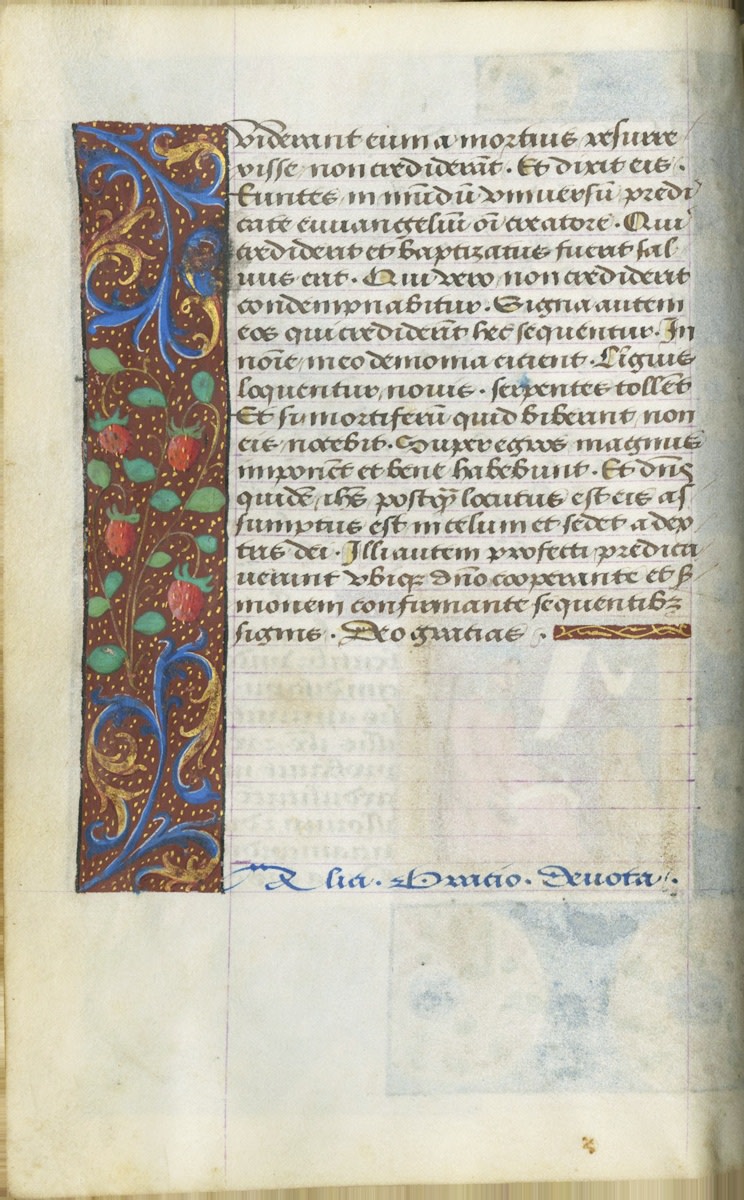 viderant eum a mortuis resurre
xisse non crediderāt. Et dixit eis.
Euntes in mūdū vniuersū predi
cate euuangeliū oī creatore. Qui
crediderit et baptizatus fuerit sal
uus erit. Qui vero non crediderit
condempnabitur. Signa autem
eos qui crediderīt hec sequentur. In
noīe meo demonia eicient. Līguis
loquentur nouis. serpentes tollēt
Et si mortiferū quid biberint non
eis nocebit. Super egros magnus
imponēt et bene habebunt. Et dn̄s
quidē ihs postꝙ locutus est eis as
sumptus est in celum et sedet a dex
tris dei. Illi autem profecti predica
uerunt vbiqꝫ dn̄o cooperante et s̄
monem confirmante sequentibꝫ
signis. Deo gratias.
Alia. Oracio. Deuota.